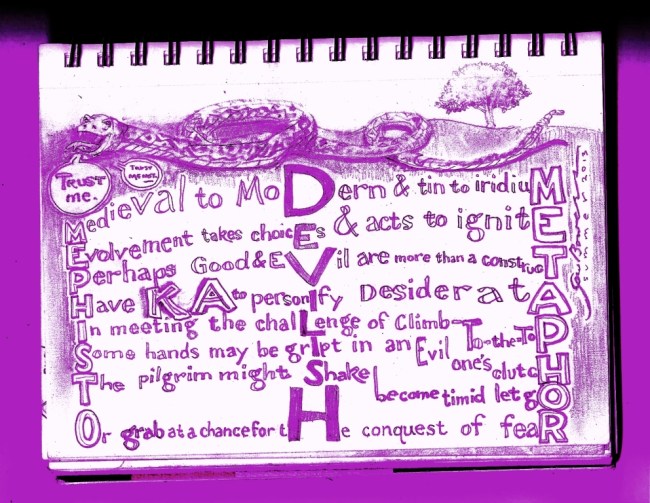 TRUST me.
TRUST ME NOT.
Medieval to MoDern & tin to iridiuM
Evolvement takes choicEs & acts to ignitE
Perhaps Good & EVil are more than a construcT
Have KA to personIfy DesideratA
In meeting the chalLenge of Climb-To-the-ToP
Some hands may be grIpt in an Evil one's clutcH
The pilgrim might Shake become timid let gO
Or grab at a chance for tHe conquest of feaR